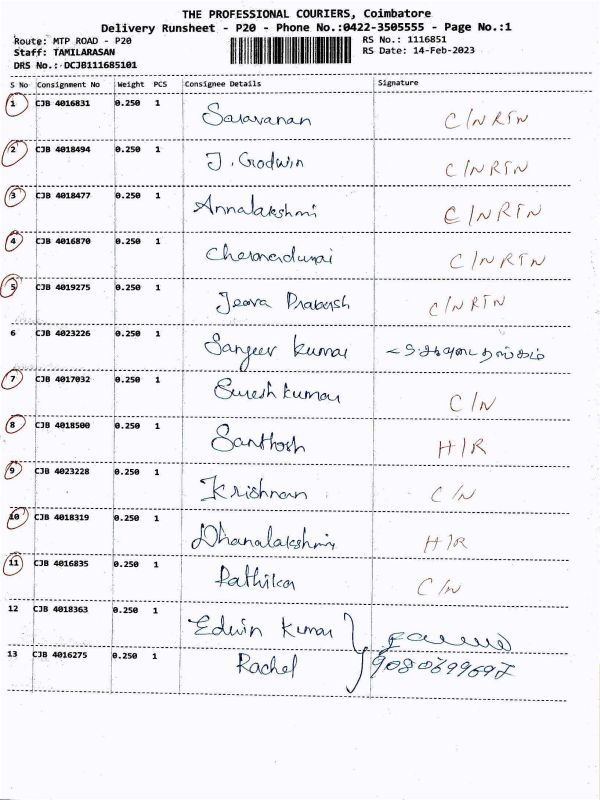 THE PROFESSIONAL COURIERS, Coimbatore
Delivery Runsheet - P20 - Phone No.:0422-3505555 - Page No.:1
Route: MTP ROAD - P20
Staff: TAMILARASAN
DRS No.: DCJB111685101
RS No.: 1116851
RS Date: 14-Feb-2023
S No Consignment No Weight PCS Consignee Details Signature
1 CJB 4016831 0.250 1 Saravanan C/N RTN
2 CJB 4018494 0.250 1 J. Godwin C/N RTN
3 CJB 4018477 0.250 1 Annalakshmi C/N RTN
4 CJB 4016870 0.250 1 C/N RTN
5 CJB 4019275 0.250 1 Jeeva Prakash C/N RTN
6 CJB 4023226 0.250 1 Sanjeev kumar
7 CJB 4017032 0.250 1 Suresh kumar C/N
8 CJB 4018500 0.250 1 Santhosh H/R
9 CJB 4023228 0.250 1 Krishnan C/N
10 CJB 4018319 0.250 1 Dhanalakshmi H/R
11 CJB 4016835 0.250 1 C/N
12 CJB 4018363 0.250 1 Edwin Kumar
13 CJB 4016275 0.250 1 Rachel